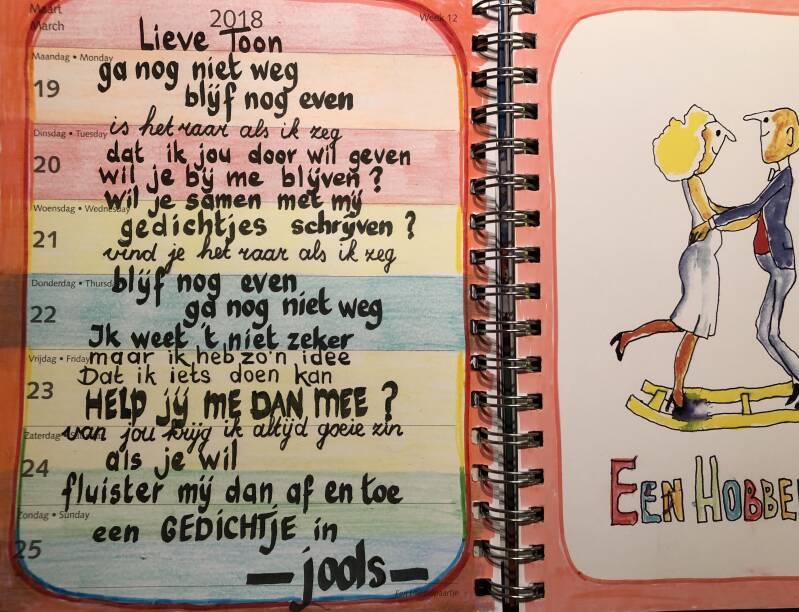 Maart
March
2018
Week 12
Lieve Toon
Maandag • Monday
19
ga nog niet weg
blijf nog even
Dinsdag • Tuesday
20
is het raar als ik zeg
dat ik jou door wil geven
wil je bij me blijven ?
Woensdag • Wednesday
21
wil je samen met mij
gedichtjes schrijven ?
vind je het raar als ik zeg
Donderdag • Thursd
22
blijf nog even
ga nog niet weg
Ik weet 't niet zeker
Vrijdag • Friday
23
maar ik heb zo'n idee
Dat ik iets doen kan
HELP jij ME DAN MEE ?
Zaterdag •
24
van jou krijg ik altijd goeie zin
als je wil
fluister mij dan af en toe
Zondag • Sunday
25
een GEDICHTJE in
— jools —
EEN HOBBE